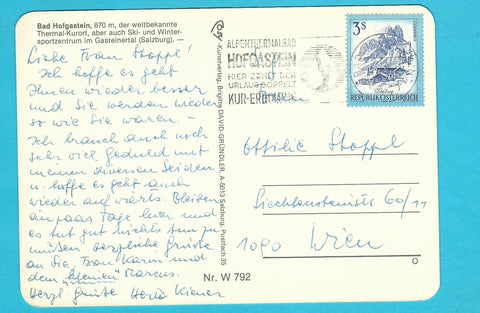 Bad Hofgastein, 870 m, der weltbekannte
Thermal-Kurort, aber auch Ski- und Winter-
sportzentrum im Gasteinertal (Salzburg).
Liebe Frau Stoppl!
Ich hoffe es geht
Ihnen wieder besser
und Sie werden wieder
so wie Sie waren –
Ich brauch auch noch
sehr viel Geduld mit
meinen diversen Leiden
u. hoffe es geht auch
wieder aufwärts. Bleiben
ein paar Tage hier und
es tut gut nichts tun zu
müßen. Herzliche Grüße
an Sie, Frau Karin und
dem kleinen Marcus.
Herzl. Grüße Herta Kiener
Kunstverlag, Brigitte DAVID-GRÜNDLER, A-5013 Salzburg, Postfach 35
ALPENTHERMALBAD
HOFGASTEIN
HIER ZÄHLT DER
URLAUB DOPPELT
KUR-ERHOLUNG
3 S
REPUBLIK ÖSTERREICH
Ottilie Stoppl
Liechtensteinstr 60/11
1090 Wien
Nr. W 792